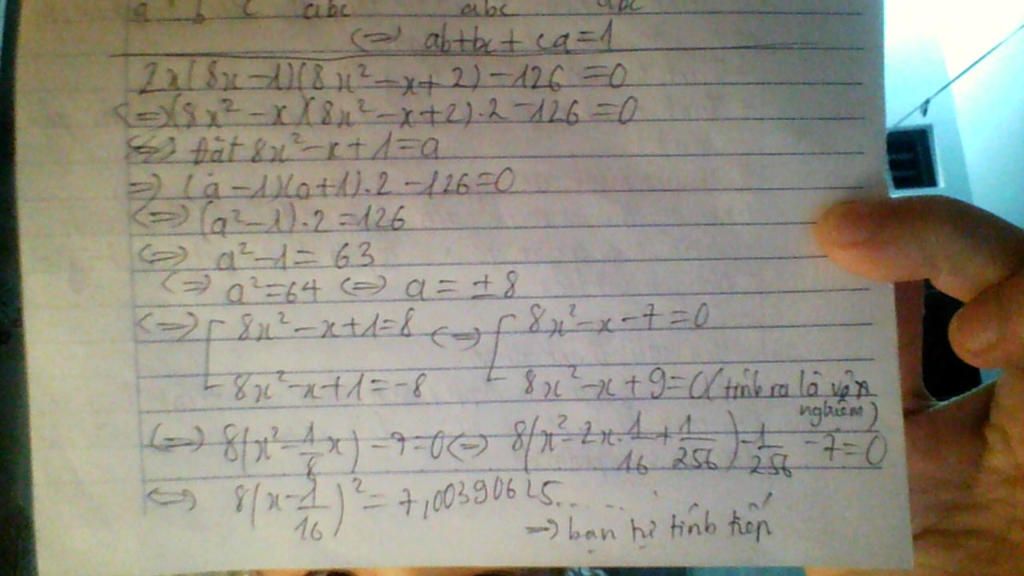 a b c abc abc abc
<=> ab+bc+ca=1
2x(8x-1)(8x²-x+2)-126=0
<=>(8x²-x)(8x²-x+2).2-126=0
<=> Đặt 8x²-x+1=a
=> (a-1)(a+1).2-126=0
<=> (a²-1).2=126
<=> a²-1=63
<=> a²=64 <=> a=±8
<=> [8x²-x+1=8 <=> [8x²-x-7=0
8x²-x+1=-8 8x²-x+9=0(tính ra là vô nghiệm)
<=> 8(x²-1/8x)-7=0<=> 8(x²-2x.1/16+1/256)-1/256-7=0
<=> 8(x-1/16)²=7,00390625...
=> bạn tự tính tiếp